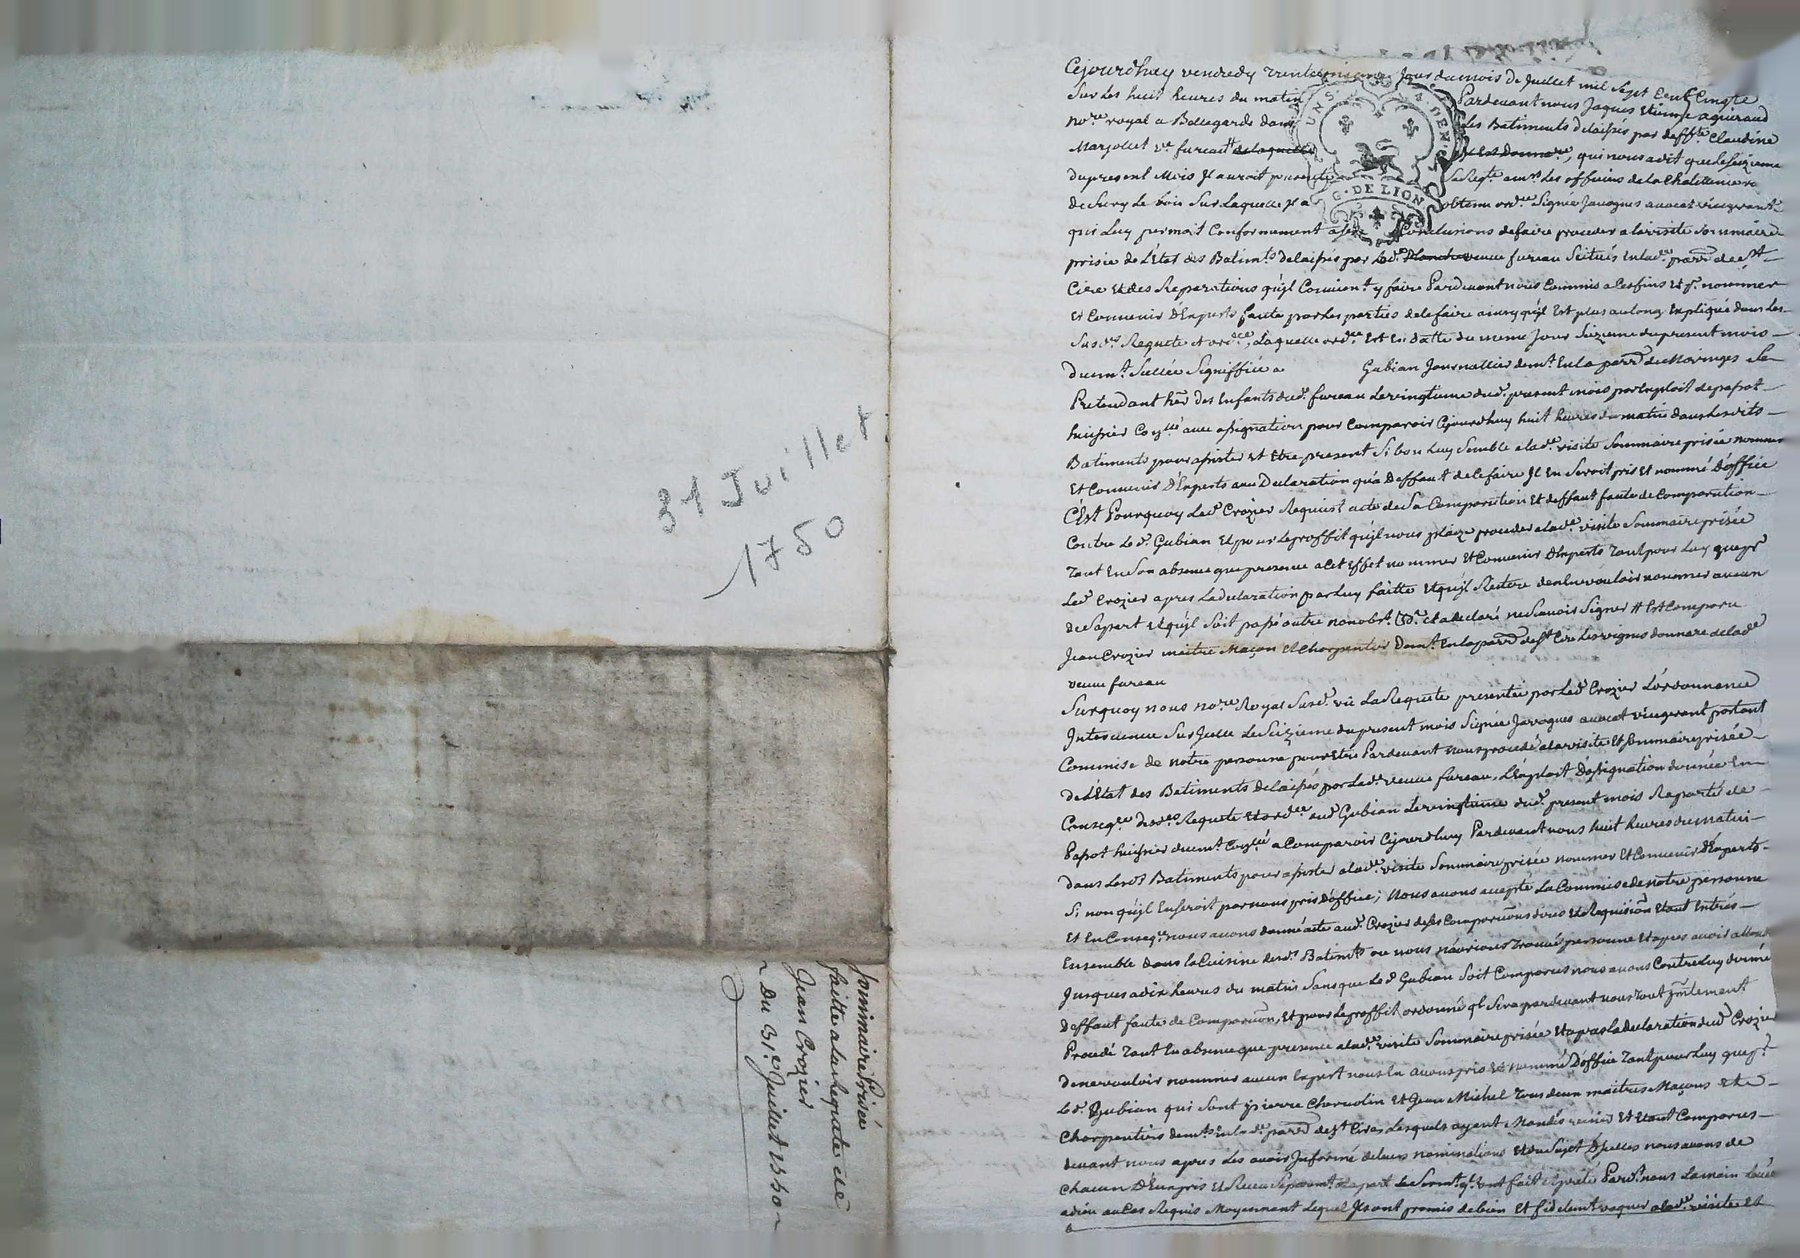 31 Juillet
1750
Sommaire Prisée
faitte a la Requete de
Jean Crozier
Du 31e Juillet 1750
UNS. 4. DEN.
G. DE LION
Cejourdhuy vendredy trente unieme Jour du mois de Juillet mil Sept Cent Cinqte
Sur les huit heures du matin Pardevant nous Jaques Etienne aguiraud
nore royal a Bellegarde dans les Batiments delaissés par deffte Claudine
Marjollet ve fureau de laquelle il est Donnare, qui nous a dit que le seizieme
du present Mois Il auroit presenté sa Reqte a mrs Les officiers de la Chatellenie
de Sury Le bois Sur Laquelle Il a obtenu ordce Signée Javogues avocat vicegerant
qui Luy permet Conformement a ses Conclusions de faire proceder a la visite Sommaire
prisée de L'Etat des Batimts delaissés par Lade veuve fureau Scitués en lade parre de St
Cire et des Reparations qu'il Convient y faire Pardevant nous Commis a Ces fins et pr nommer
et Convenir d'Experts faute par Les parties de le faire ainsy qu'il Est plus au long Expliqué dans Les
Susdes Requete et ordce, Laquelle ordce Est En datte du meme Jour Seizieme du present mois
duemt Scellée Signiffiée a Gubian Journallier demt En la parre de Maringes Se
Pretendant her des Enfants dud. fureau Le vingtieme dud. present mois par Exploit de papot
huissier Collé avec assignation pour Comparoir Cejourdhuy huit heures du matin dans Lesdits
Batiments pour assister et Etre present Si bon Luy Semble a lade visite Sommaire prisée nommer
et Convenir d'Experts avec Declaration qu'a Deffaut de le faire Il En Seroit pris et nommé d'office
C'Est Pourquoy Led. Crozier Requiert acte de Sa Comparution et deffaut faute de Comparution
Contre Led. Gubian et pour Le proffit qu'il nous plaize proceder a lade visite Sommaire prisée
Tant En Son absence que presence a Cet Effet nommer et Convenir d'Experts Tant pour Luy que pr
Led. Crozier apres La declaration par Luy faitte et qu'il Reitere de n'En vouloir nommer aucun
de Sa part et qu'il Soit passé outre nonobst. et a declaré ne Scavoir Signer # Est Comparu
Jean Crozier maitre Maçon et Charpentier Demt En la parre de St Cire Les vignes donnare de lade
veuve fureau
Surquoy nous nore Royal Susd. vû La Requete presentée par Led. Crozier L'ordonnance
Intervenue Sur Icelle Le Seizieme du present mois Signée Javogues avocat vicegerant portant
Commise de notre personne pour Etre Pardevant nous procedé a la visite et Sommaire prisée
de L'Etat des Batiments delaissés par Lade veuve fureau, L'Exploit d'assignation donnée En
Conseqce desdes Requete et ordce aud. Gubian Le vingtieme dud. present mois Raporté de
Papot huissier duemt Collé a Comparoir Cejourdhuy Pardevant nous huit heures du matin
dans Lesds Batiments pour assister a lade visite Sommaire prisée nommer et Convenir d'Experts
Si non qu'il En Seroit par nous pris d'office; Nous avons accepté La Commise de notre personne
Et En Conseqce nous avons donné acte aud. Crozier de ses Comparutions dires et Requisition Etant Entrés
Ensemble dans La Cuisine desds Batimts ou nous n'avions Trouvé personne et apres avoir attendu
Jusques a dix heures du matin Sans que Led. Gubian Soit Comparu nous avons Contre Luy donné
deffaut faute de Comparution, et pour Le proffit ordonné ql Sera pardevant nous Tout presentement
Procedé Tant En absence que presence a lade visite Sommaire prisée et apres la declaration dud. Crozier
de ne vouloir nommer aucun Expert nous En avons pris et nommé D'office Tant pour Luy que pr
Led. Gubian qui Sont pierre Charvolin et Jean Michel Tous deux maitres Maçons et
Charpentiers demts En lade parre de St Cire Lesquels ayant Mandés venir et Etant Comparus
devant nous apres Les avoir Informé de Leurs nominations et du Sujet D'Icelles nous avons de
Chacun D'Eux pris et Receu Separemt Le Sermt qt ont fait et preté Pardt nous La main Levée
a dieu au Cas Requis Moyennant Lequel Ils ont promis de bien et fidelemt vaquer a lade visite et